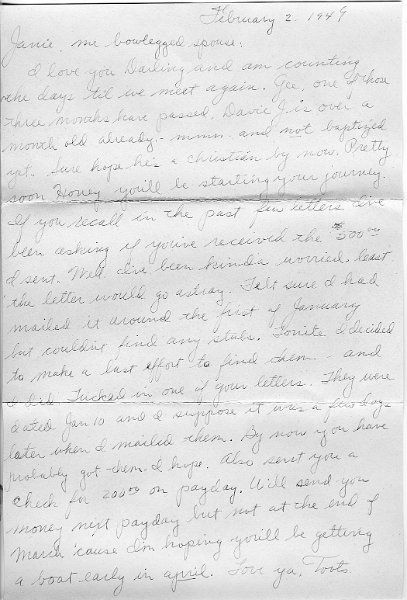 February 2. 1949
Janie, me bowlegged spouse:
I love you Darling and am counting
the days 'til we meet again. Gee, one of those
three months have passed. Davie J. is over a
month old already - mmm - and not baptized
yet. Sure hope he's a christian by now. Pretty
soon Honey you'll be starting your journey.
If you recall in the past few letters I've
been asking if you've received the $500.00
I sent. Well I've been kinda worried least
the letter would go astray. Felt sure I had
mailed it around the first of January
but couldn't find any stubs. Tonite I decided
to make a last effort to find them - and
I did. Tucked in one of your letters. They were
dated Jan 10 and I suppose it was a few days
later when I mailed them. By now you have
probably got them I hope. Also sent you a
check for 200.00 on payday. Will send you
money next payday but not at the end of
March 'cause I'm hoping you'll be getting
a boat early in april. Love ya, Toots.